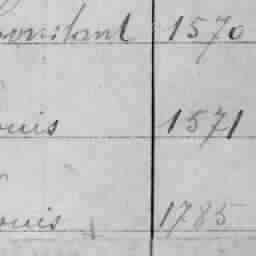 onstant 1570
ouis 1571
ouis 1785